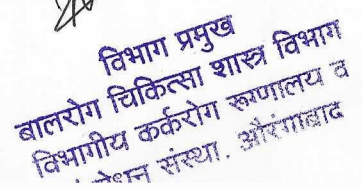 विभाग प्रमुख
बालरोग चिकित्सा शास्त्र विभाग
विभागीय कर्करोग रुग्णालय व
संस्था. औरंगाबाद